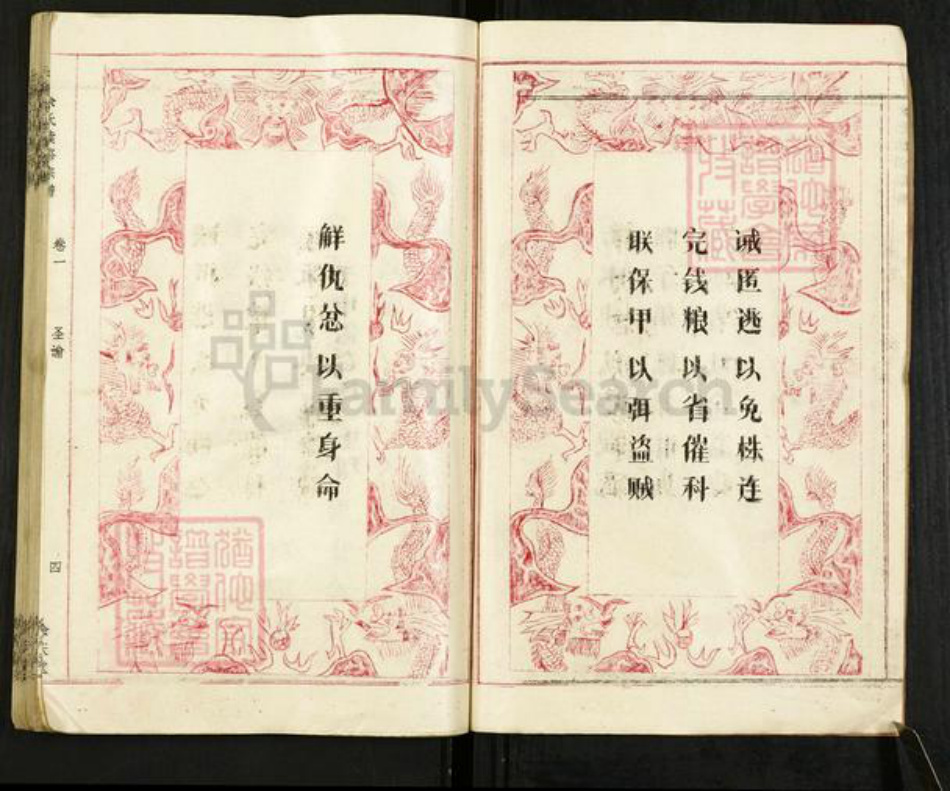 诫匿逃以免株连
完钱粮以省催科
联保甲以弭盗贼
鲜仇忿以重身命
卷一
圣谕
四
FamilySearch